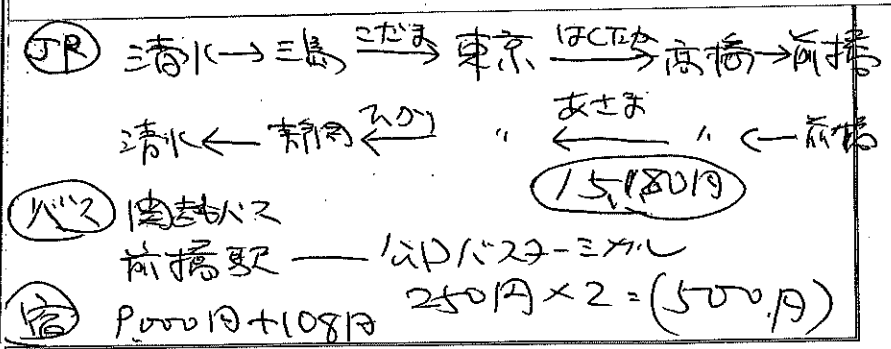 JR 清水→三島 こだま→ 東京 はくたか→ 高橋→前橋
清水←静岡 ひかり← 〃 あさま← 〃 ←前橋
15,180円
バス 関越バス
前橋駅 ― バスターミナル
250円×2=(500円)
宿 9,000円+108円